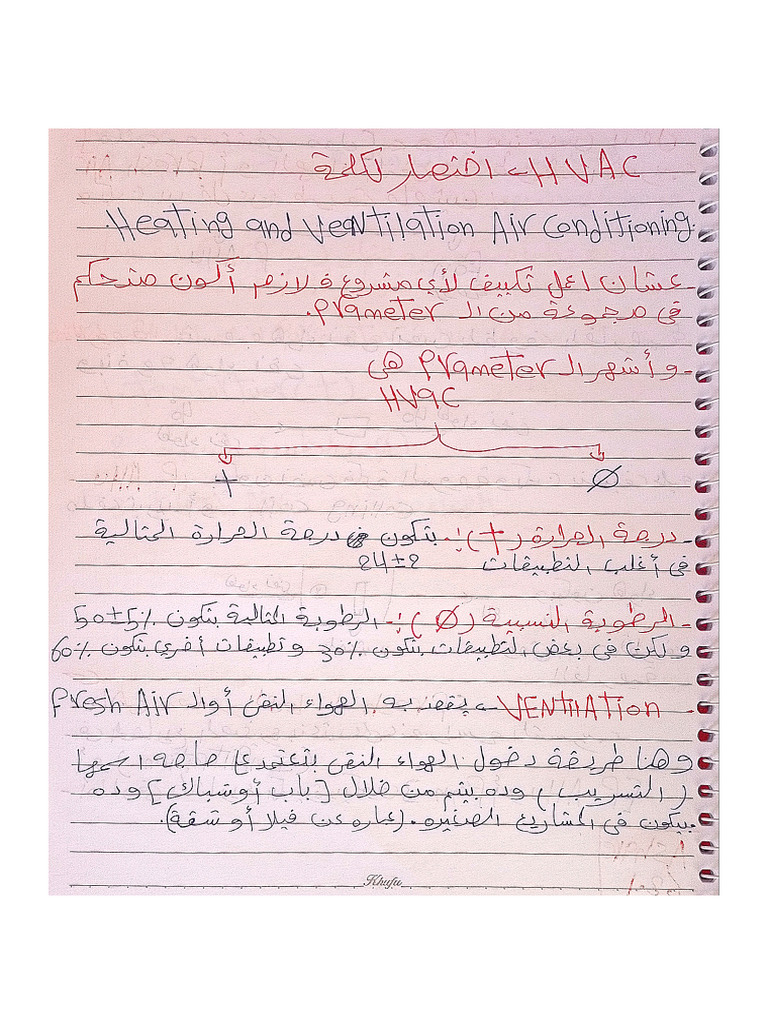 HVAC → اختصار لكلمة
Heating and Ventilation Air Conditioning.
- عشان اعمل تكييف لأي مشروع فلازم أكون متحكم
فى مجموعة من الـ Prameter.
- وأشهر الـ Prameter هى
HVAC
t Ø
- درجة الحرارة (t) :- بتكون فى درجة الحرارة المثالية
فى أغلب التطبيقات 24±2
- الرطوبة النسبية (Ø) :- الرطوبة المثالية بتكون 50±5%
ولكن فى بعض التطبيقات بتكون 30% وتطبيقات أخرى بتكون 60%
- VENTIlATion → يقصد به الهواء النقى أو الـ Fresh Air
وهنا طريقة دخول الهواء النقى بتعتمد ع حاجه اسمها
(التسريب) وده بيتم من خلال [باب أو شباك] وده
بيكون فى المشاريع الصغيره. (عباره عن فيلا أو شقة).
Khufu